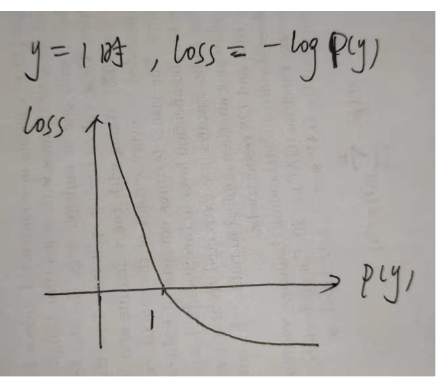 y=1时, loss = -log P(y)
loss
P(y)
1